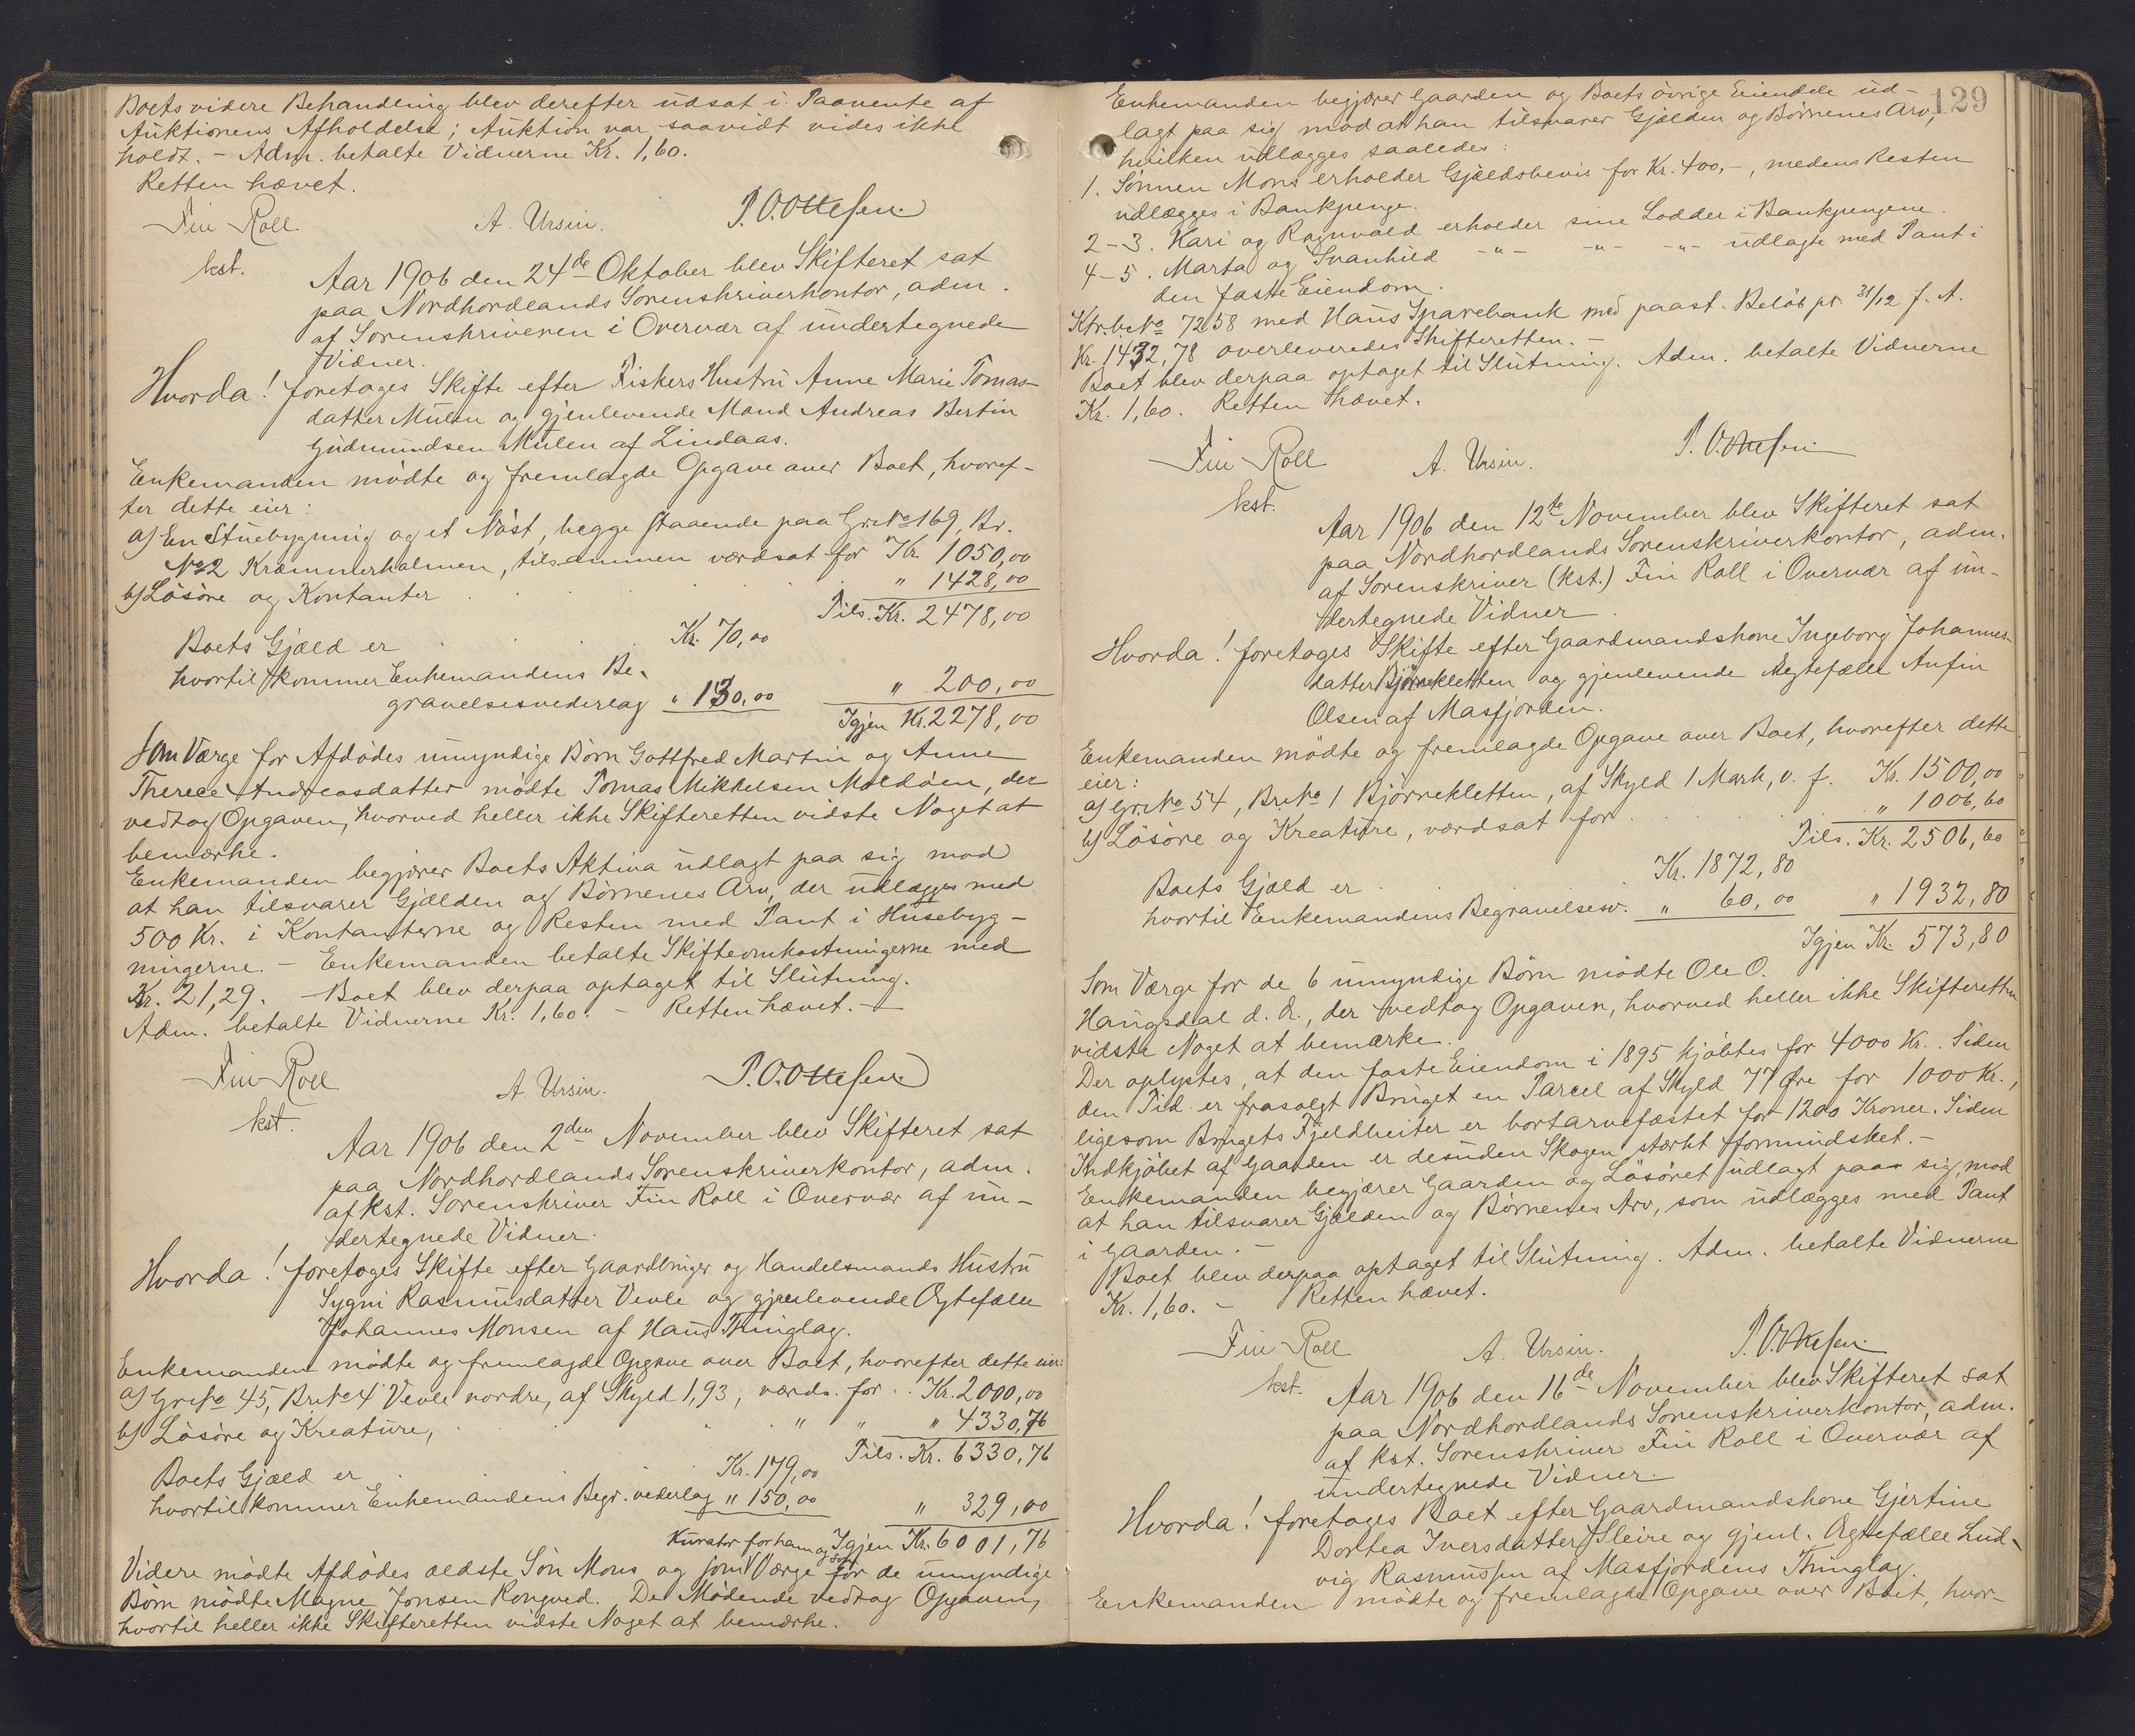 Boets videre Behandling blev derefter udsat i Paavente af
Auktionens Afholdelse; Auktion var saavidt vides ikke
holdt. - Adm. betalte Vidnerne Kr. 1,60.
Retten hævet.
Fin Roll A. Ursin. P. O. Ottesen
kst.
Aar 1906 den 24de Oktober blev Skifteret sat
paa Nordhordlands Sorenskriverkontor, adm.
af Sorenskriveren i Overvær af undertegnede
Vidner.
Hvorda! foretoges Skifte efter Fiskers Hustru Anne Marie Tomas-
datter Mulen og gjenlevende Mand Andreas Bertin
Gudmundsen Mulen af Lindaas.
Enkemanden mødte og fremlagde Opgave over Boet, hvoref-
ter dette eier:
a) En Stuebygning og et Nøst, begge staaende paa Gr. No 169, Br.
No 2 Kræmmerholmen, tilsammen værdsat for Kr. 1050,00
b) Løsøre og Kontanter . . . . " 1428,00
Tils. Kr. 2478,00
Boets Gjæld er . . . Kr. 70,00
hvortil kommer Enkemandens Be-
gravelsesvederlag " 130,00 " 200,00
Igjen Kr. 2278,00
Som Værge for Afdødes umyndige Børn Gottfred Martin og Anne
Therece Andreasdatter mødte Tomas Mikkelsen Moldøen, der
vedtog Opgaven, hvorved heller ikke Skifteretten vidste Noget at
bemærke.
Enkemanden begjærer Boets Aktiva udlagt paa sig mod
at han tilsvarer Gjælden og Børnenes Arv, der udlægges med
500 Kr. i Kontanterne og Resten med Pant i Husebyg-
ningerne. - Enkemanden betalte Skifteomkostningerne med
Kr. 21,29. - Boet blev derpaa optaget til Slutning.
Adm. betalte Vidnerne Kr. 1,60. - Retten hævet. -
Fin Roll A. Ursin. P. O. Ottesen
kst.
Aar 1906 den 2den November blev Skifteret sat
paa Nordhordlands Sorenskriverkontor, adm.
af kst. Sorenskriver Fin Roll i Overvær af un-
dertegnede Vidner.
Hvorda! foretoges Skifte efter Gaardbruger og Handelsmands Hustru
Sygni Rasmusdatter Vevle og gjenlevende Ægtefælle
Johannes Monsen af Haus Thinglag.
Enkemanden mødte og fremlagde Opgave over Boet, hvorefter dette eier:
a) Gr. No 45, Br. No 4 Vevle nordre, af Skyld 1,93, værds. for . . Kr. 2000,00
b) Løsøre og Kreature, . . " " " 4330,76
Tils. Kr. 6330,76
Boets Gjæld er . . . Kr. 179,00
hvortil kommer Enkemandens Begr. vederlag " 150,00 " 329,00
Igjen Kr. 6001,76
Kurator for ham og som
Videre mødte Afdødes ældste Søn Mons og som Værge for de umyndige
Børn mødte Magne Jonsen Rongved. De Mødende vedtog Opgaven,
hvortil heller ikke Skifteretten vidste Noget at bemærke.
129
Enkemanden begjærer Gaarden og Boets øvrige Eiendele ud-
lagt paa sig mod at han tilsvarer Gjælden og Børnenes Arv,
hvilken udlægges saaledes:
1. Sønnen Mons erholder Gjældsbevis for Kr. 400,-, medens Resten
udlægges i Bankpenge.
2-3. Kari og Ragnvald erholder sine Lodder i Bankpengene.
4-5. Marta og Svanhild -"- -"- -"- udlagte med Pant i
den faste Eiendom.
Ktr.b. No 7258 med Haus Sparebank med paast. Beløb pr. 31/12 f. A.
Kr. 1432,78 overleveredes Skifteretten. -
Boet blev derpaa optaget til Slutning. Adm. betalte Vidnerne
Kr. 1,60. Retten hævet.
Fin Roll A. Ursin. P. O. Ottesen
kst.
Aar 1906 den 12te November blev Skifteret sat
paa Nordhordlands Sorenskriverkontor, adm.
af Sorenskriver (kst.) Fin Roll i Overvær af un-
dertegnede Vidner.
Hvorda! foretoges Skifte efter Gaardmandskone Ingeborg Johannes-
datter Bjørnekletten og gjenlevende Ægtefælle Anfin
Olsen af Masfjorden.
Enkemanden mødte og fremlagde Opgave over Boet, hvorefter dette
eier:
a) Gr. No 54, Br. No 1 Bjørnekletten, af Skyld 1 Mark, v. f. Kr. 1500,00
b) Løsøre og Kreature, værdsat for . . . " 1006,60
Tils. Kr. 2506,60
Boets Gjæld er . . . Kr. 1872,80
hvortil Enkemandens Begravelsesv. " 60,00 " 1932,80
Igjen Kr. 573,80
Som Værge for de 6 umyndige Børn mødte Ole O.
Haugsdal d. æ., der vedtog Opgaven, hvorved heller ikke Skifteretten
vidste Noget at bemærke.
Der oplystes, at den faste Eiendom i 1895 kjøbtes for 4000 Kr. Siden
den Tid er frasolgt Bruget en Parcel af Skyld 77 Øre for 1000 Kr.,
ligesom Brugets Fjeldbeiter er bortarvefæstet for 1200 Kroner. Siden
Indkjøbet af Gaarden er desuden Skogen stærkt formindsket. -
Enkemanden begjærer Gaarden og Løsøret udlagt paa sig, mod
at han tilsvarer Gjælden og Børnenes Arv, som udlægges med Pant
i Gaarden. -
Boet blev derpaa optaget til Slutning. Adm. betalte Vidnerne
Kr. 1,60. - Retten hævet.
Fin Roll A. Ursin. P. O. Ottesen
kst.
Aar 1906 den 16de November blev Skifteret sat
paa Nordhordlands Sorenskriverkontor, adm.
af kst. Sorenskriver Fin Roll i Overvær af
undertegnede Vidner.
Hvorda! foretoges Boet efter Gaardmandskone Gjertine
Dortea Iversdatter Sleire og gjenl. Ægtefælle Lud-
vig Rasmussen af Masfjordens Thinglag.
Enkemanden mødte og fremlagde Opgave over Boet, hvor-